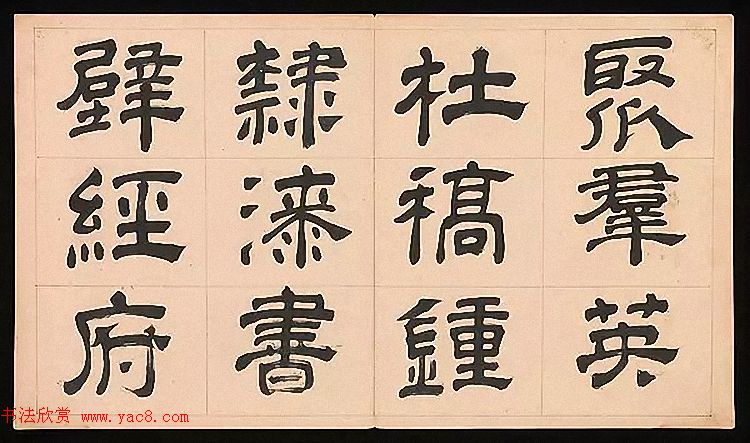 聚羣英
杜稿鍾
隸漆書
壁經府
书法欣赏 www.yac8.com